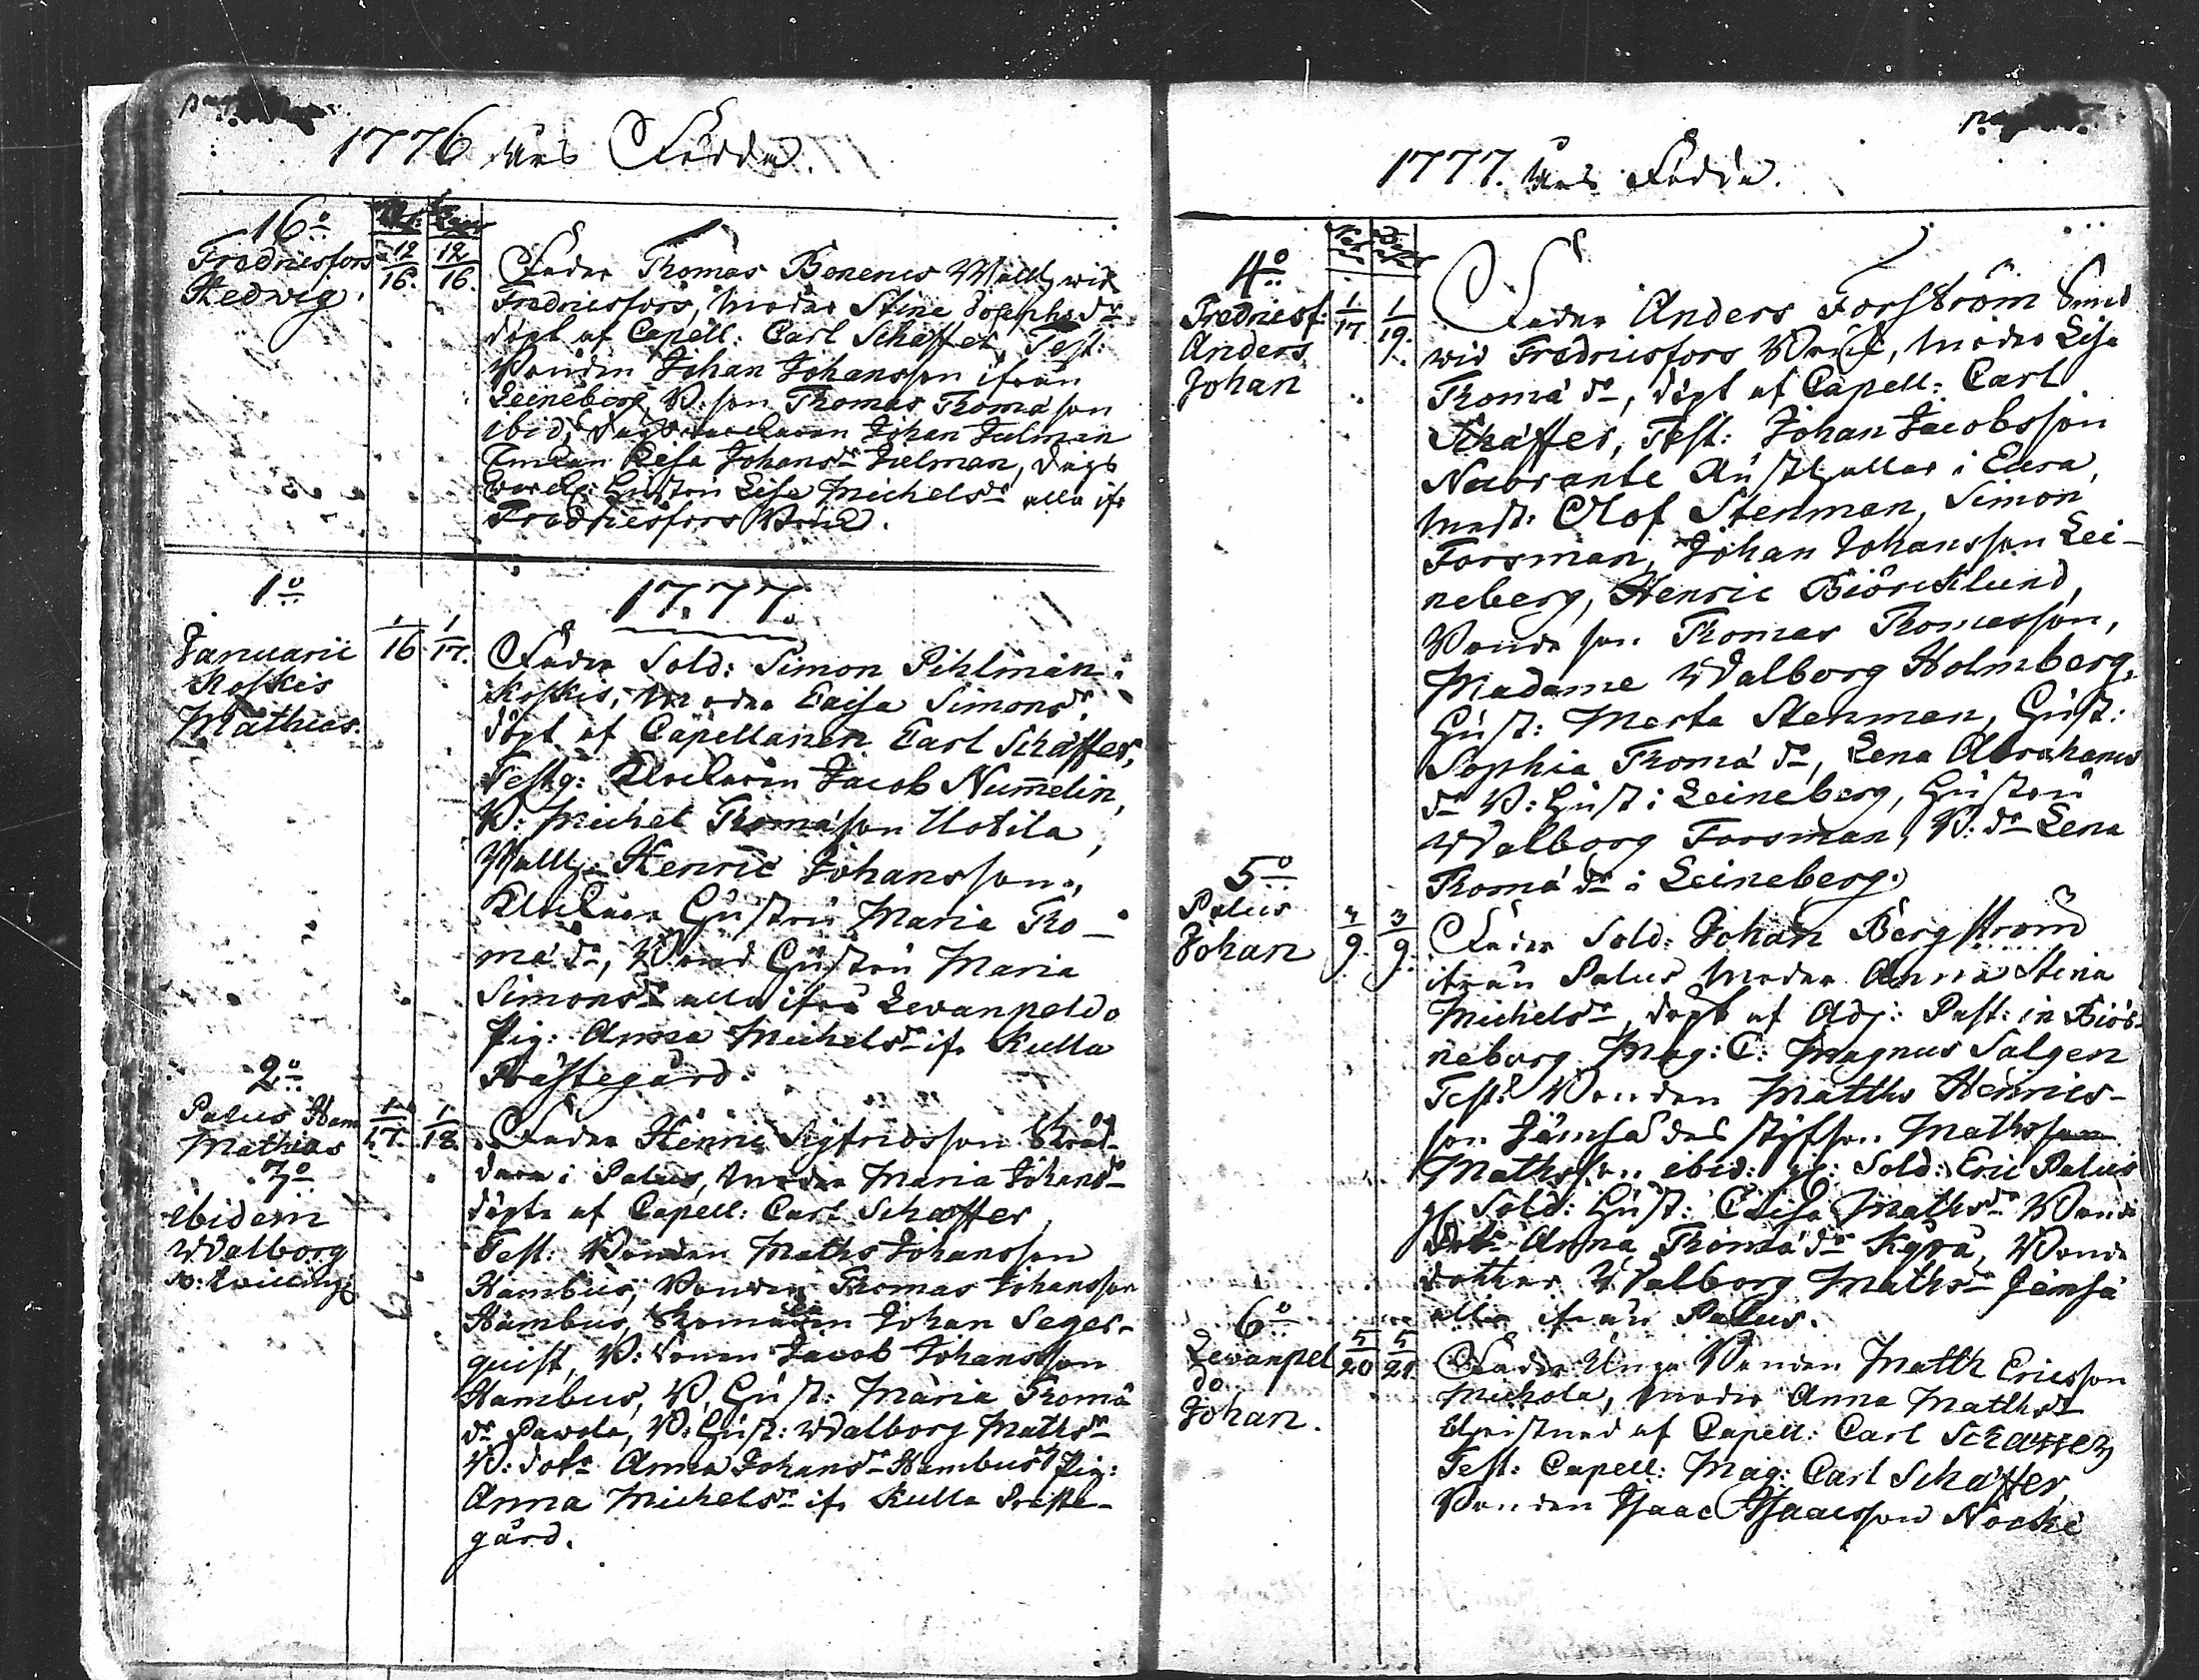 1776 års Födde.
16o
Fredricsfors
Hedwig.
12
16.
12
16.
Fader Thomas Bonenus Wallb wid
Fredricsfors, moder Stina Josephs dr
döpt af Capell: Carl Schæffer, Test:
Bonden Johan Johansson ifrån
Leineberg, B: son Thomas Thomæson
ibid, Johan Julman
Lisa Johansdr Julman, dags
Hustru Lisa Michelsdr alla ifr
Fredricsfors Bruk.
1777.
1o
Januarii
Koskis
Mathias.
1
16
1
17.
Fader Sold: Simon Pihlman i
Koskis, moder Caisa Simonsdr
döpt af Capellanen Carl Schæffer,
Testg: Klockaren Jacob Numelin,
B: Michel Thomæson Uotila,
Henric Johansson,
Klockare Hustru Maria Tho-
mædr, Bond Hustru Maria
Simonsdr alla ifrå Levanpeldo
Pig: Anna Michelsdr ifr Kulla
Prästegård.
2o
Palus Ham
Mathias
3o
ibidem
Walborg
Twilling
1
17.
1
18.
Fader Henric Sigfridsson Skräd-
dare i Palus, moder Maria Johansdr
döpte af Capell: Carl Schæffer,
Test: Bonden Maths Johansson
Hambus, Bonden Thomas Johansson
Hambus, Johan Seger-
quist, B: sonen Jacob Johansson
Hambus, B. Hust: Maria Thomæ
dr Pavola, B: Hust: Walborg Mathsdr
B: dotr Anna Johansdr Hambus Pig:
Anna Michelsdr ifr Kulla Preste-
gård.
1777. Års Födde.
4o
Fredricsf:
Anders
Johan
1
17.
1
19.
Fader Anders Forström Smed
wid Fredricsfors Bruk, moder Lisa
Thomædr, döpt af Capell: Carl
Schæffer, Test: Johan Jacobsson
i Eura,
mäst: Olof Stenman, Simon
Forsman, Johan Johansson Lei-
neberg, Henric Biörcklund,
Bonde son Thomas Thomasson,
Madame Walborg Holmberg,
Hust: Merta Stenman, Hust:
Sophia Thomædr, Lena Abrahams
dr B: Hust: Leineberg, Hustru
Walborg Forsman, B: dr Lena
Thomædr i Leineberg.
5o
Palus
Johan
3
9.
3
9.
Fader Sold: Johan Bergström
ifrån Palus moder Anna Stina
Michelsdr, döpt af Adj: Past: in Biör-
neborg Mag: C: Magnus Salgen
Test: Bonden Matths Henrics-
son Jämsä des styfson Mathsson
Mathsson ibid: gl: Sold: Eric Palus
gl Sold: Hust: Caisa Mathsdr Bonde
dotr Anna Thomædr Kyrä, Bonde
dotter Walborg Mathsdr Jämsä
alla ifrån Palus.
6o
Levanpel
do
Johan.
5
20
5
21.
Fader Unga Bonden Matth Ericsson
Michola, moder Anna Matthsdr
Christnad af Capell: Carl Schæffer
Test: Capell: Mag: Carl Schæffer,
Bonden Isaac Isaacsson Nocke